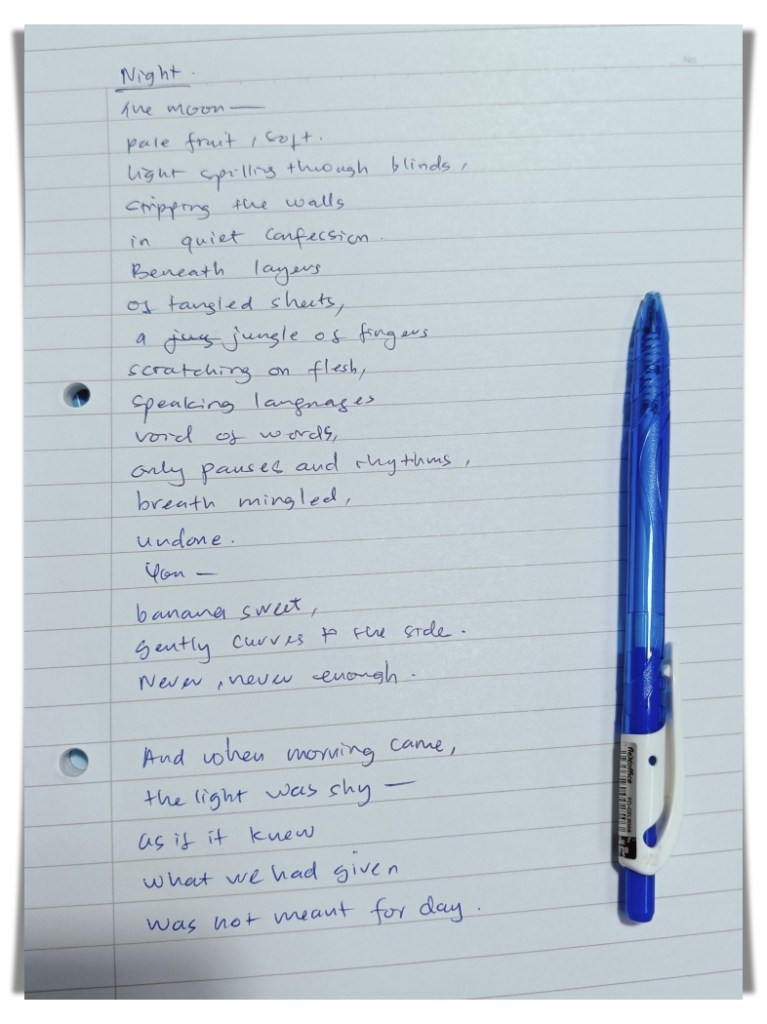 Night.
The moon —
pale fruit, soft.
light spilling through blinds,
stripping the walls
in quiet confession.
Beneath layers
of tangled sheets,
a jung jungle of fingers
scratching on flesh,
speaking languages
void of words,
only pauses and rhythms,
breath mingled,
undone.
You —
banana sweet,
gently curves to the side.
Never, never enough.
And when morning came,
the light was shy —
as if it knew
what we had given
was not meant for day.